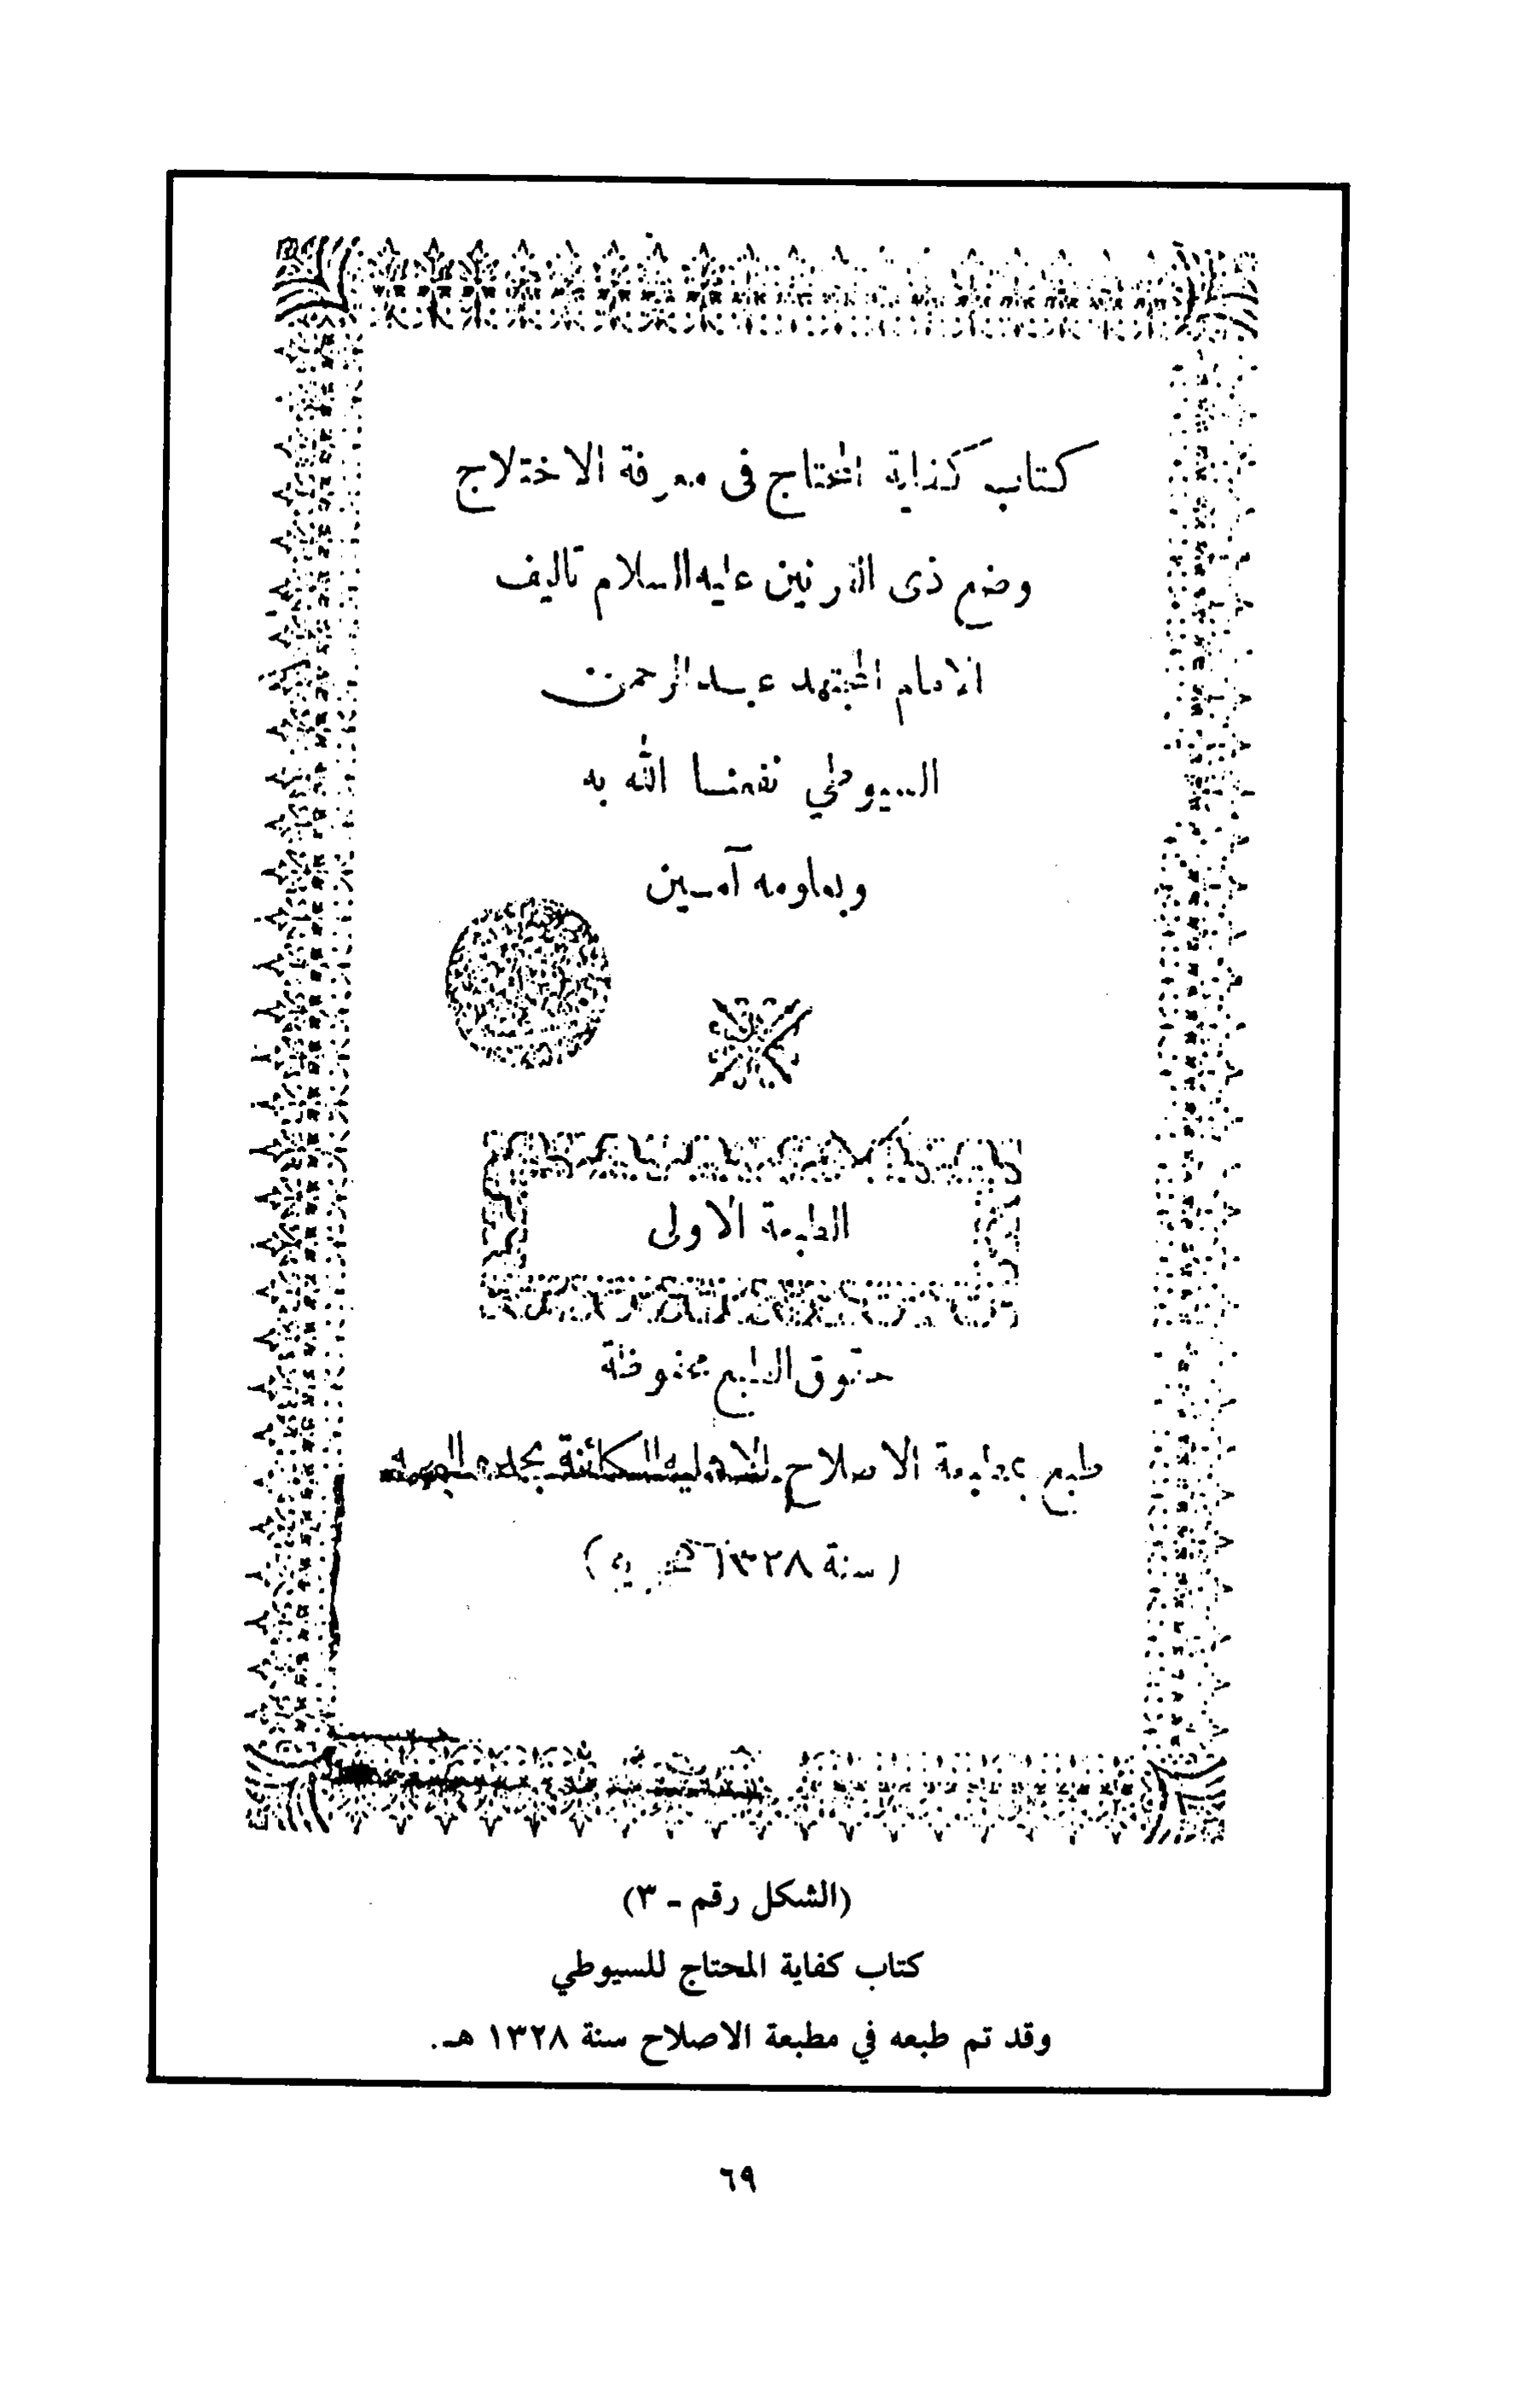 كتاب كفاية المحتاج فى معرفة الاختلاج
وضع ذى القرنين عليه السلام تأليف
الامام المجتهد عبد الرحمن
السيوطي نفعنا الله به
وبعلومه آمين
الطبعة الاولى
حقوق الطبع محفوظة
طبع بمطبعة الاصلاح الاهلية الكائنة
(سنة ١٣٢٨ هجرية)
(الشكل رقم - ٣)
كتاب كفاية المحتاج للسيوطي
وقد تم طبعه في مطبعة الاصلاح سنة ١٣٢٨ هـ.
٦٩